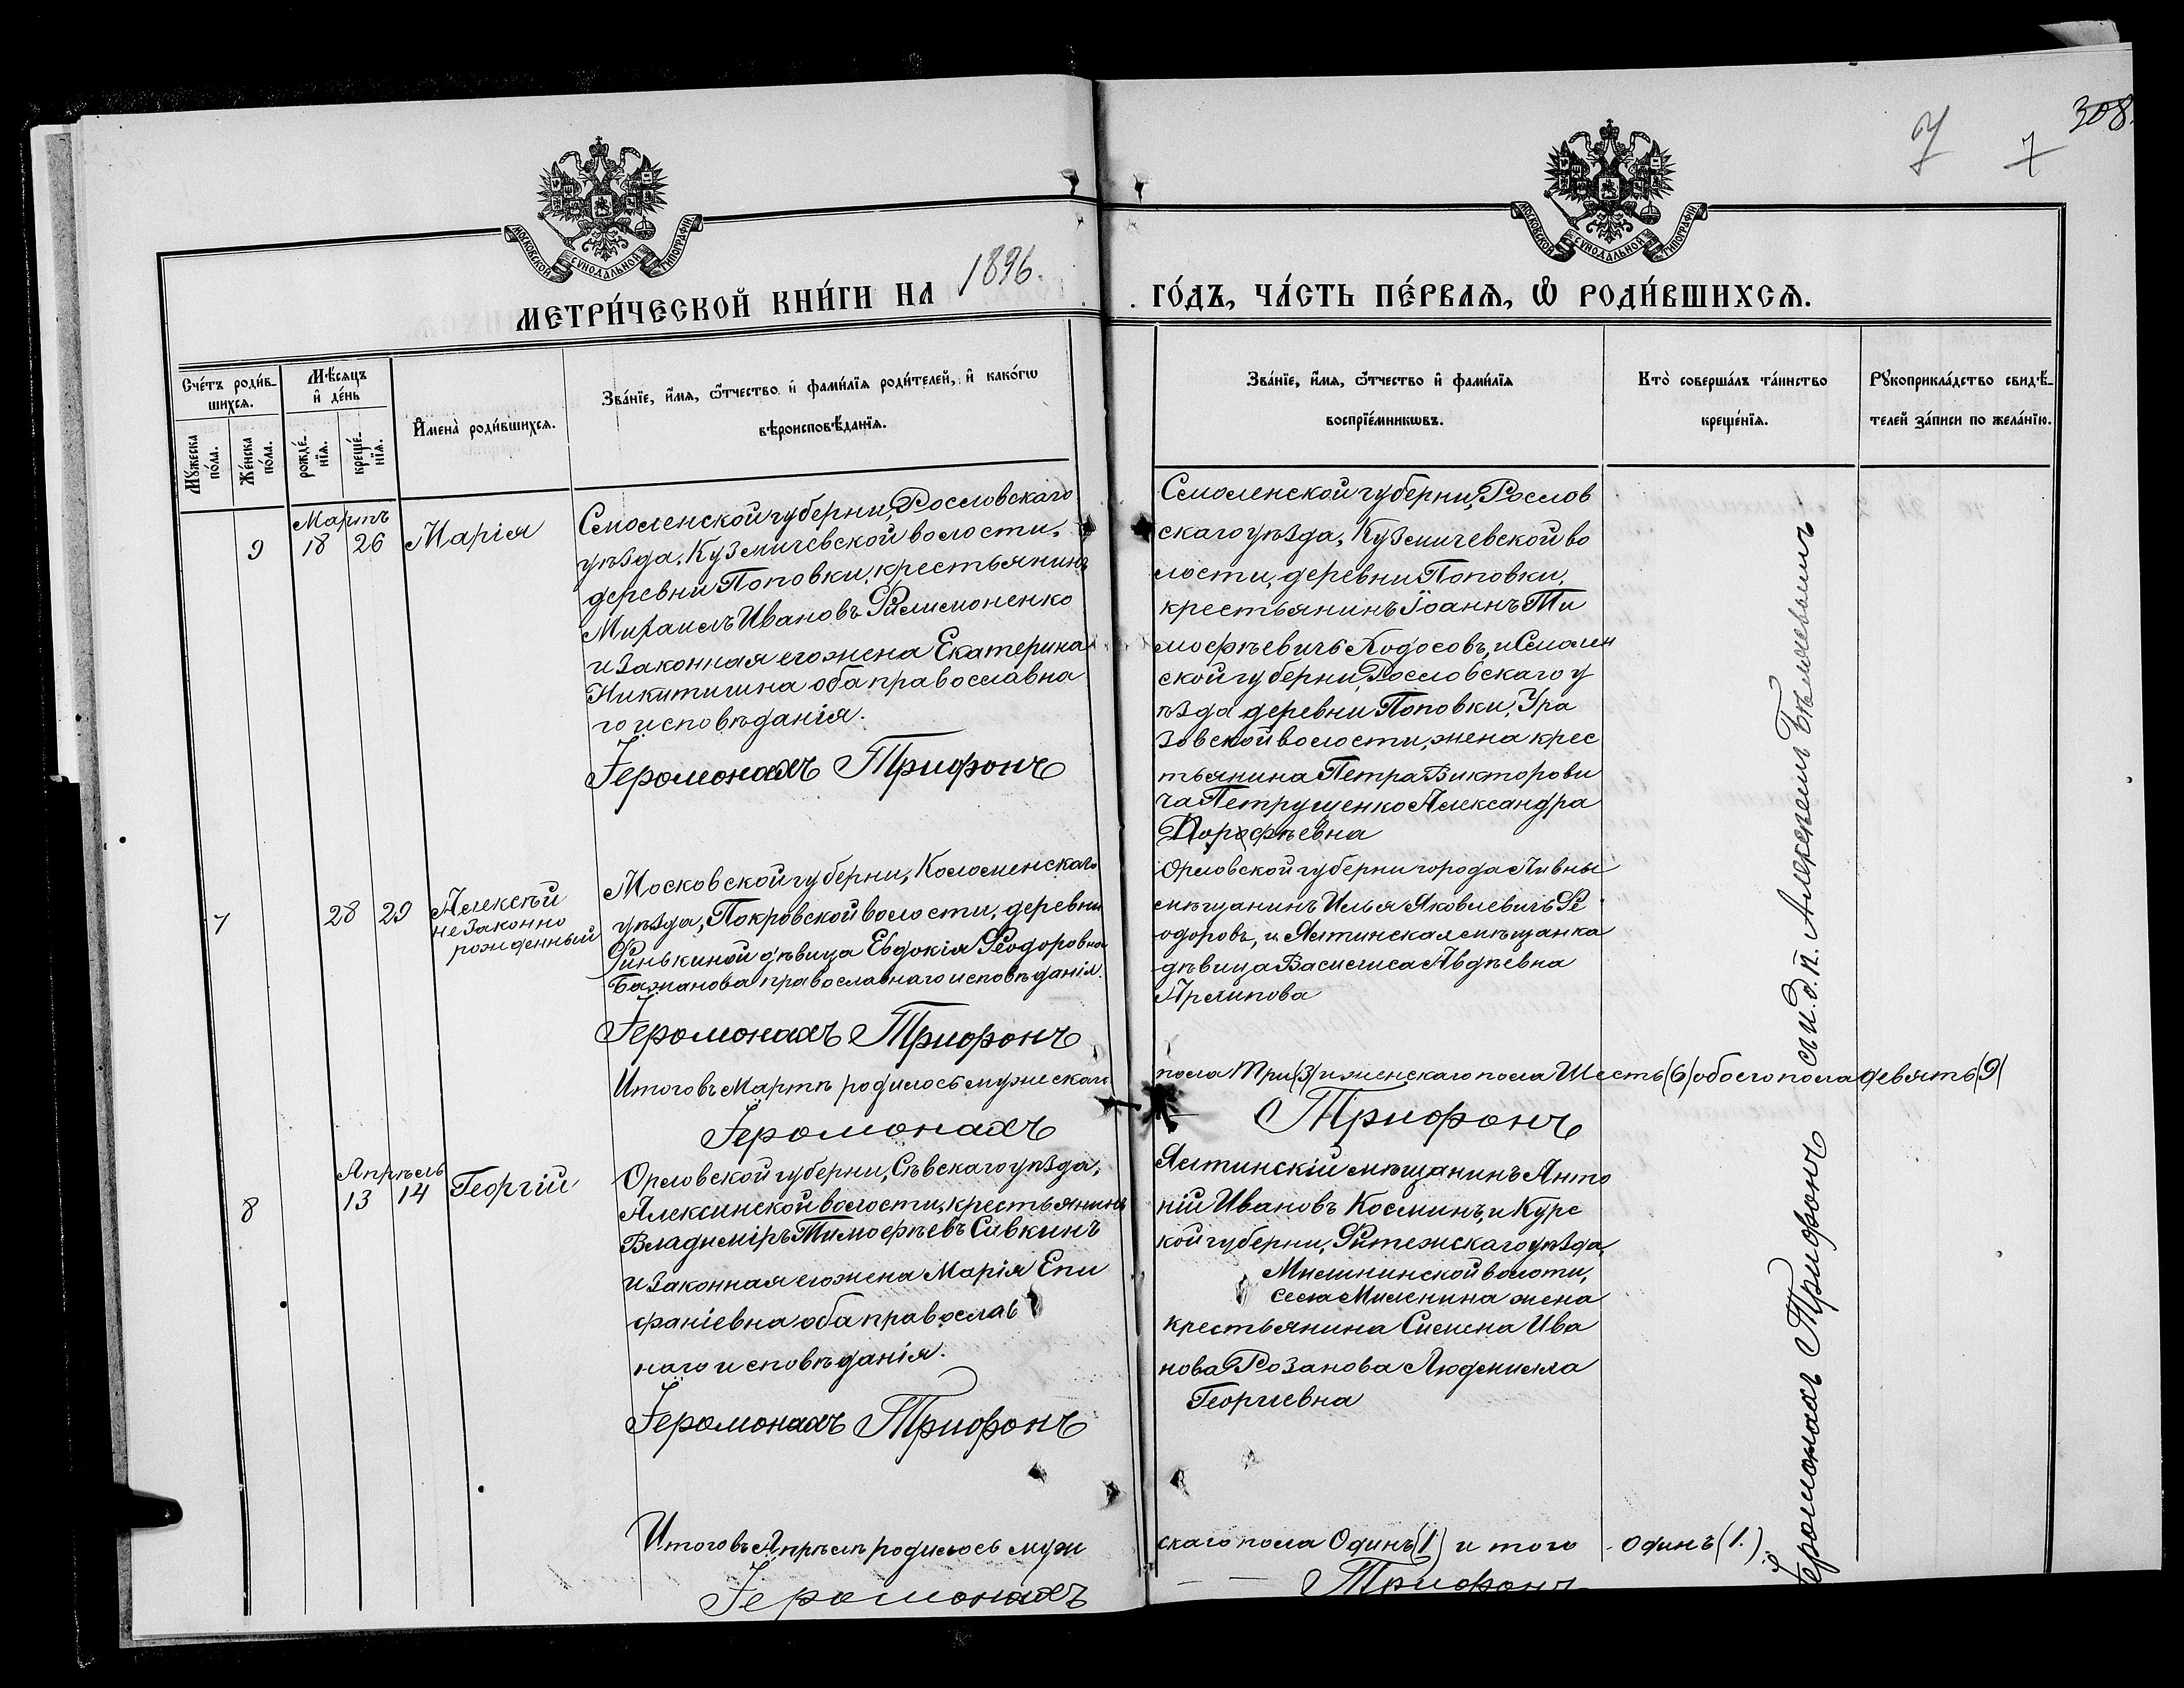 308.
7
7
МОСКОВСКОЙ СУНОДАЛЬНОЙ ТИПОГРАФІИ
МОСКОВСКОЙ СУНОДАЛЬНОЙ ТИПОГРАФІИ
МЕТРИ́ЧЕСКОЙ КНИ́ГИ НА 1896.
ГО́ДЪ, ЧА́СТЬ ПЕ́РВАѦ, Ѡ҆ РОДИ́ВШИХСѦ.
Сче́тъ роди́в-
шихсѧ.
Мꙋ́жеска по́ла.
Же́нска по́ла.
Мѣ́сѧцъ и҆ де́нь
рожде́-нїѧ.
креще́-нїѧ.
И҆мена̀ роди́вшихсѧ.
Зва́нїе, и҆́мѧ, ѻ҆́тчество и҆ фами́лїѧ роди́телей, и҆ како́гѡ
вѣроисповѣ́данїѧ.
Зва́нїе, и҆́мѧ, ѻ҆́тчество и҆ фами́лїѧ
воспрїе́мникѡвъ.
Кто̀ соверша́лъ та́инство
креще́нїѧ.
Рꙋкоприкла́дство свидѣ́-
телей за́писи по жела́нїю.
Мартъ
9 18 26 Марія
Смоленской губерніи, Рословскаго
уѣзда, Кузмичевской волости,
деревни Поповки, крестьянинъ
Михаилъ Ивановъ Филимоненко
и законная его жена Екатерина
Никитишна оба православна
го исповѣданія.
Іеромонахъ Трифонъ
Смоленской губерніи, Рослов
скаго уѣзда, Кузмичевской во
лости, деревни Поповки,
крестьянинъ Іоаннъ Ти
мофѣевичъ Ходосовъ, и Смолен
ской губерніи, Рословскаго у
ѣзда деревни Поповки, Ура
зовской волости, жена крес
тьянина Петра Викторови
ча Петрущенко Александра
Дорофѣевна
7 28 29 Алексѣй
незаконно
рожденный
Московской губерніи, Коломенскаго
уѣзда, Покровской волости, деревни
Финькиной дѣвица Евдокія Феодоровна
Бажанова православнаго исповѣданія.
Іеромонахъ Трифонъ
Орловской губерніи города Ливны
мѣщанинъ Илья Яковлевичъ Фе
одоровъ, и Ялтинская мѣщанка
дѣвица Василиса Авдѣевна
Архипова
Итого въ Мартѣ родилось мужескаго
пола Три (3) и женскаго пола Шесть (6) обоего пола девять (9)
Іеромонахъ
Трифонъ
Апрѣль
8 13 14 Георгій
Орловской губерніи, Сѣвскаго уѣзда,
Алексинской волости, крестьянинъ
Владиміръ Тимофѣевъ Сивкинъ
и законная его жена Марія Епи
фаніевна оба православ
наго исповѣданія.
Іеромонахъ Трифонъ
Ялтинскій мѣщанинъ Анто
ній Ивановъ Косминъ, и Курс
кой губерніи, Фатежскаго уѣзда,
Миленинской волоти,
села Миленина жена
крестьянина Симена Ива
нова Розанова Людмилла
Георгіевна
Итого въ Апрѣлѣ родилось муже
скаго пола Одинъ (1) и того одинъ (1.)
Іеромонахъ
Трифонъ
Іеромонахъ Трифонъ съ и. д. п. Алексѣемъ Бѣляевымъ